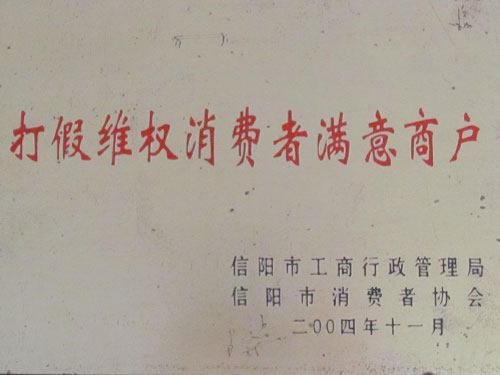 打假维权消费者满意商户
信阳市工商行政管理局
信阳市消费者协会
二00四年十一月